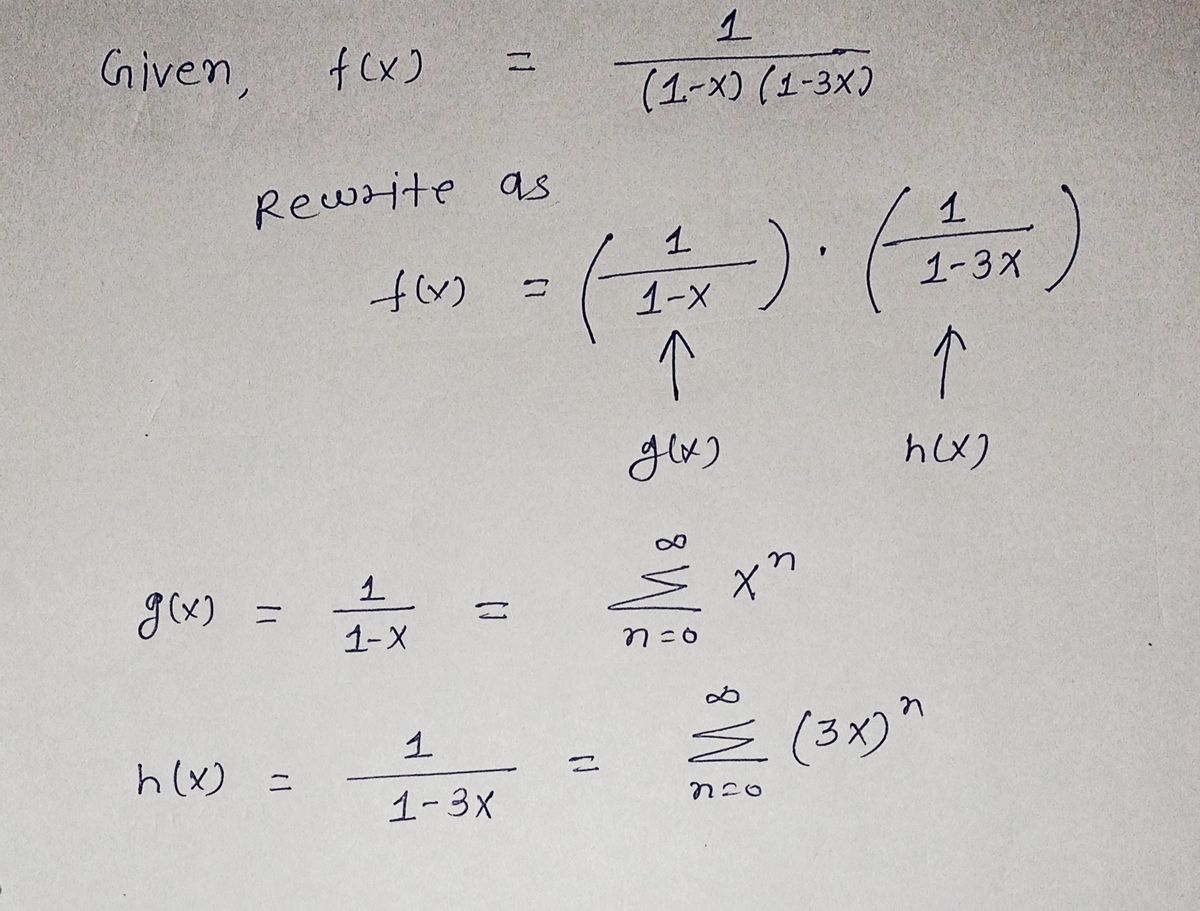 Given, f(x) = 1 / (1-x)(1-3x)
Rewrite as
f(x) = (1 / 1-x) · (1 / 1-3x)
↑ ↑
g(x) h(x)
g(x) = 1 / 1-x = ∞ Σ n=0 xⁿ
h(x) = 1 / 1-3x = ∞ Σ n=0 (3x)ⁿ